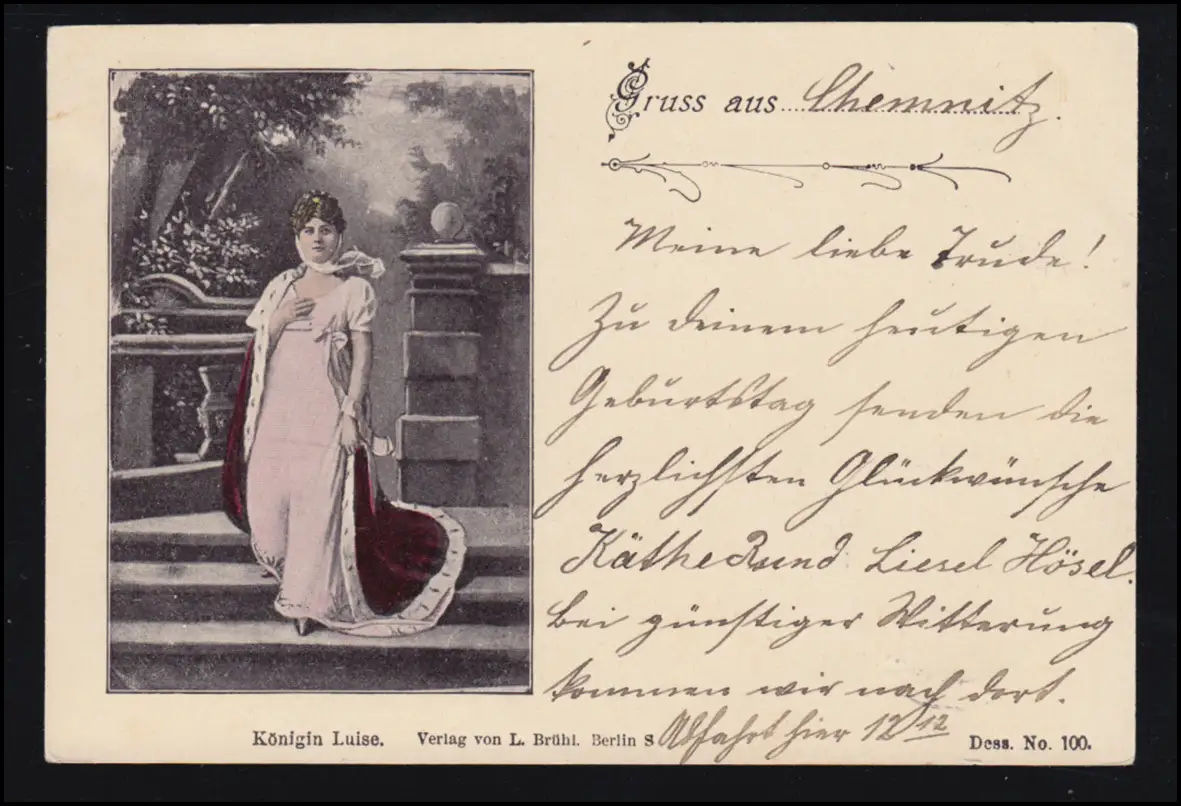 Gruss aus Chemnitz.
Meine liebe Trude!
Zu deinem heutigen
Geburtstag senden die
herzlichsten Glückwünsche
Käthe und Liesel Hösel.
Bei günstiger Witterung
kommen wir nach dort.
Abfahrt hier 12 12
Königin Luise. Verlag von L. Brühl. Berlin S Dess. No. 100.